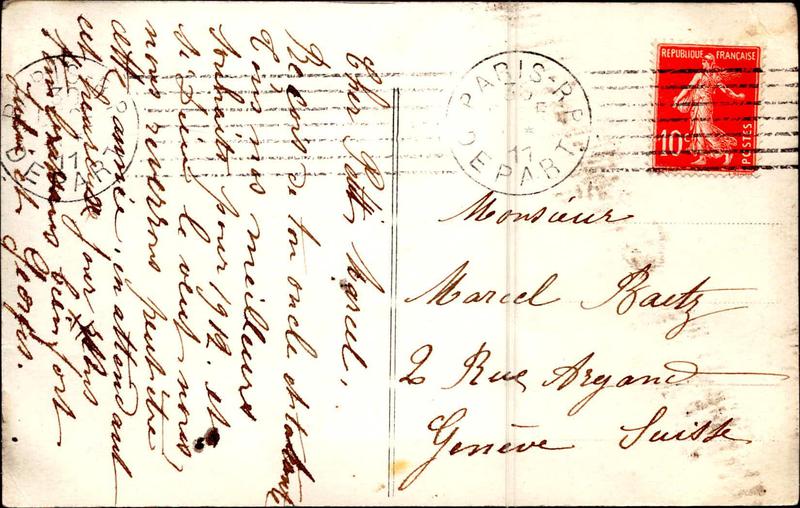 Cher Petit Marcel,
Reçois de ton oncle et ta tante
tous nos meilleurs
souhaits pour 1912. et
si Dieu le veut nous
nous reverrons peut être
cette année, en attendant
cet heureux jour
bien fort
Georges.
PARIS-R.P.
DEPART
11
PARIS-R.P.
DEPART
11
REPUBLIQUE FRANÇAISE
10c
POSTES
Monsieur
Marcel Raetz
2 Rue Argand
Genève Suisse